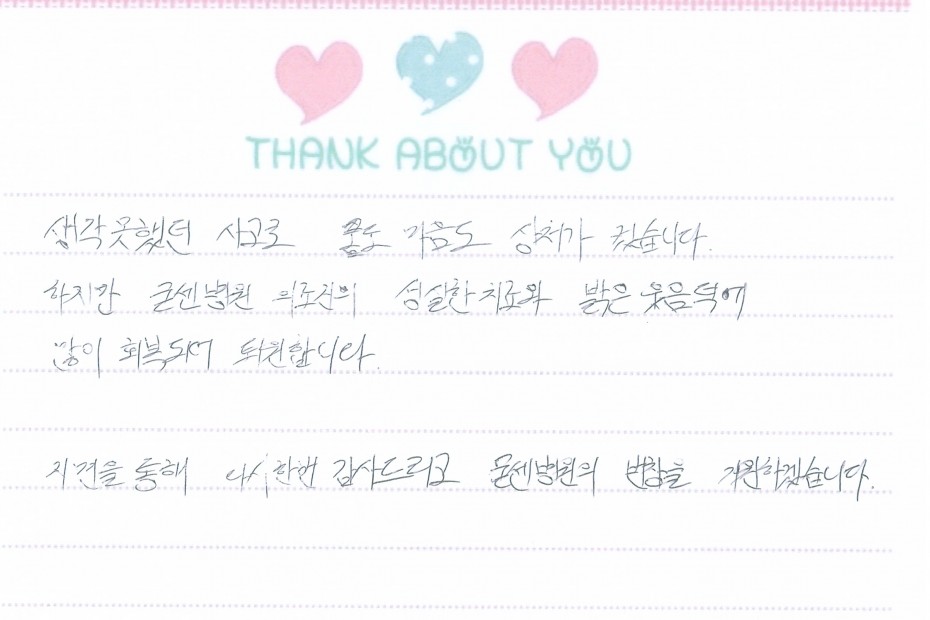 THANK ABOUT YOU
생각못했던 사고로 몸도 마음도 상처가 컸습니다.
하지만 굳센병원 의료진의 성실한 치료와 밝은 웃음덕에
많이 회복되어 퇴원합니다.
지면을 통해 다시한번 감사드리고 굳센병원의 번창을 기원하겠습니다.